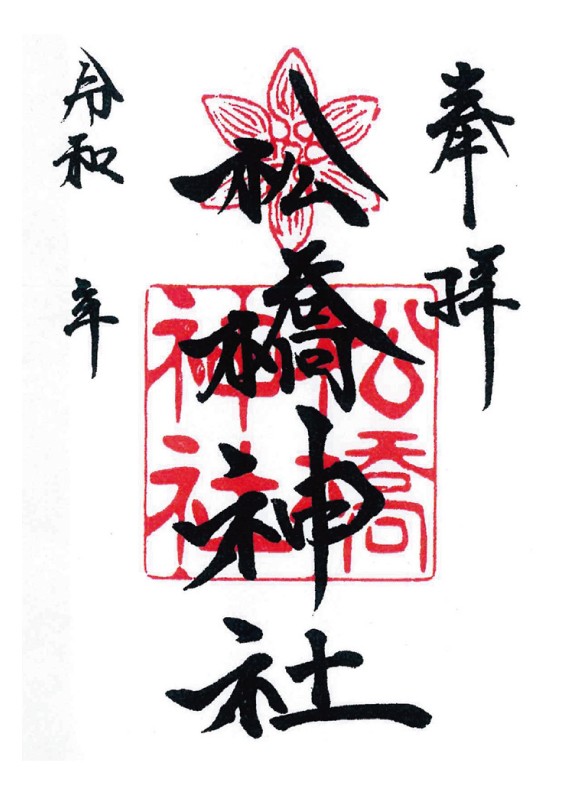 奉拝
松橋神社
松橋
神社
令和 年